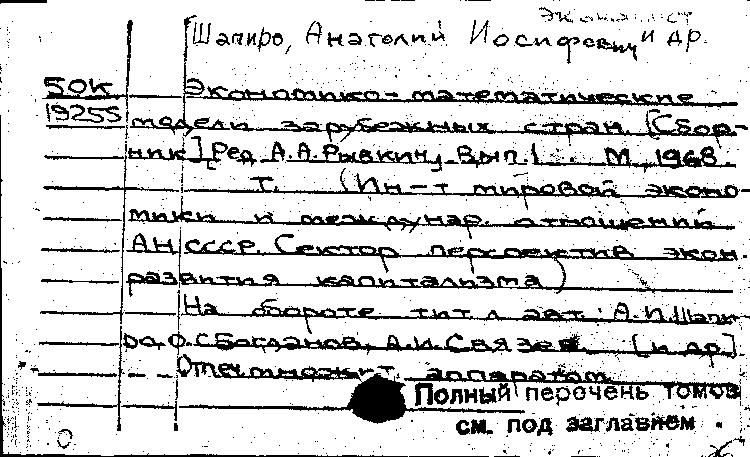 экономист
Шапиро, Анатолий Иосифович и др.
50К Экономико-математические
19255 модели зарубежных стран. [Сбор-
ник]. [Ред. А.А. Рывкин]. Вып. 1 . М., 1968.
т. (Ин-т мировой эконо-
мики и междунар. отношений
АН СССР. Сектор перспектив экон.
развития капитализма)
На обороте тит. л. авт.: А.И. Шапи-
ро, О.С. Богданов, А.И. Связев [и др.]
Отпеч. множит. аппаратом
Полный перечень томов
см. под заглавием .